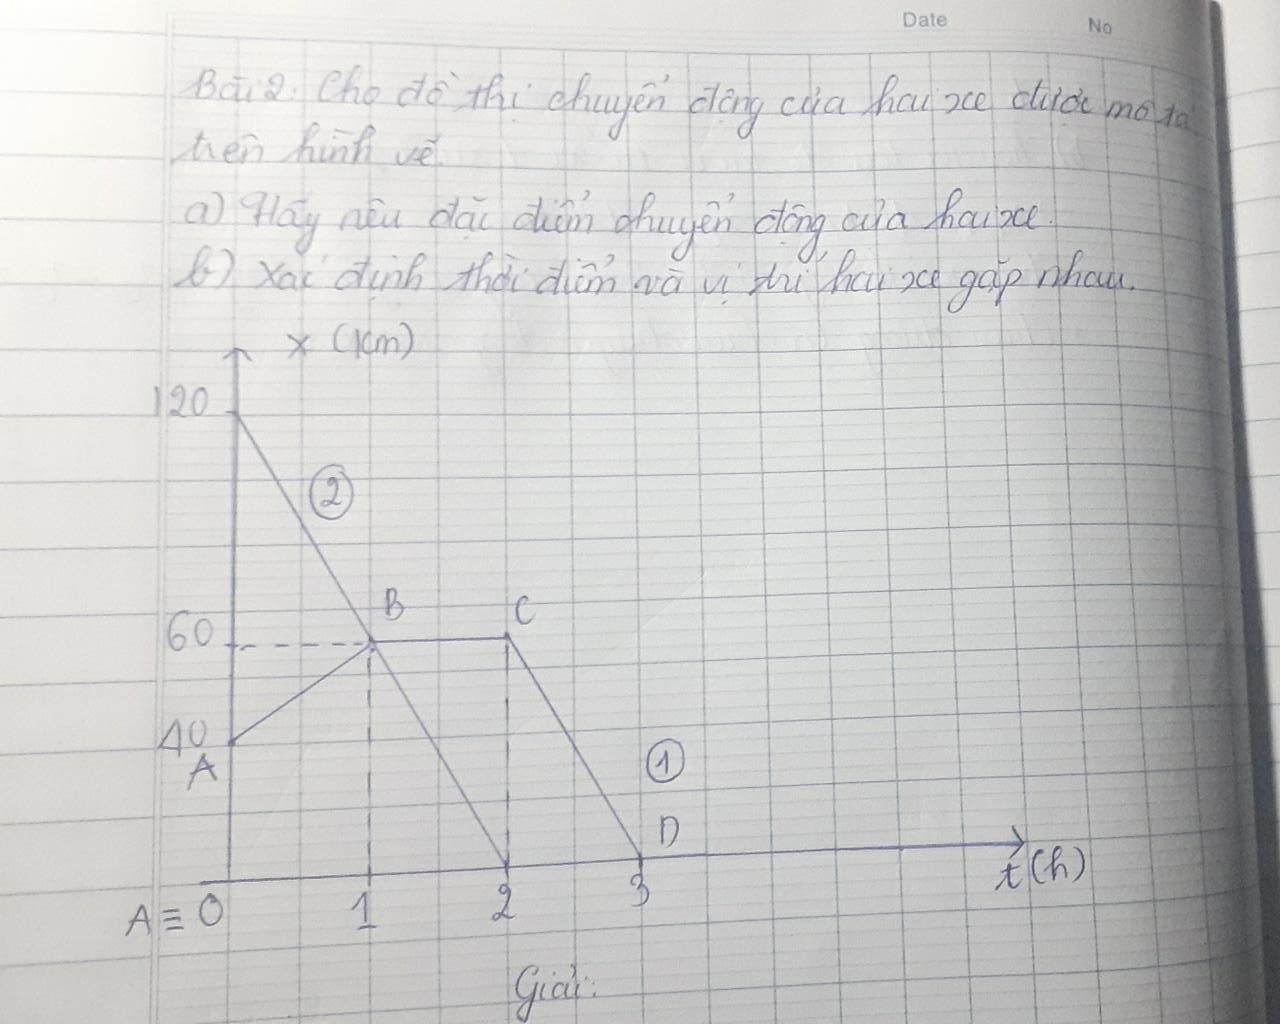 Date No
Bài 2. Cho đồ thị chuyển động của hai xe được mô tả
trên hình vẽ
a) Hãy nêu đặc điểm chuyển động của hai xe.
b) Xác định thời điểm và vị trí hai xe gặp nhau.
x (km)
120
2
B C
60
40
A
1
D
t (h)
A ≡ 0 1 2 3
Giải: